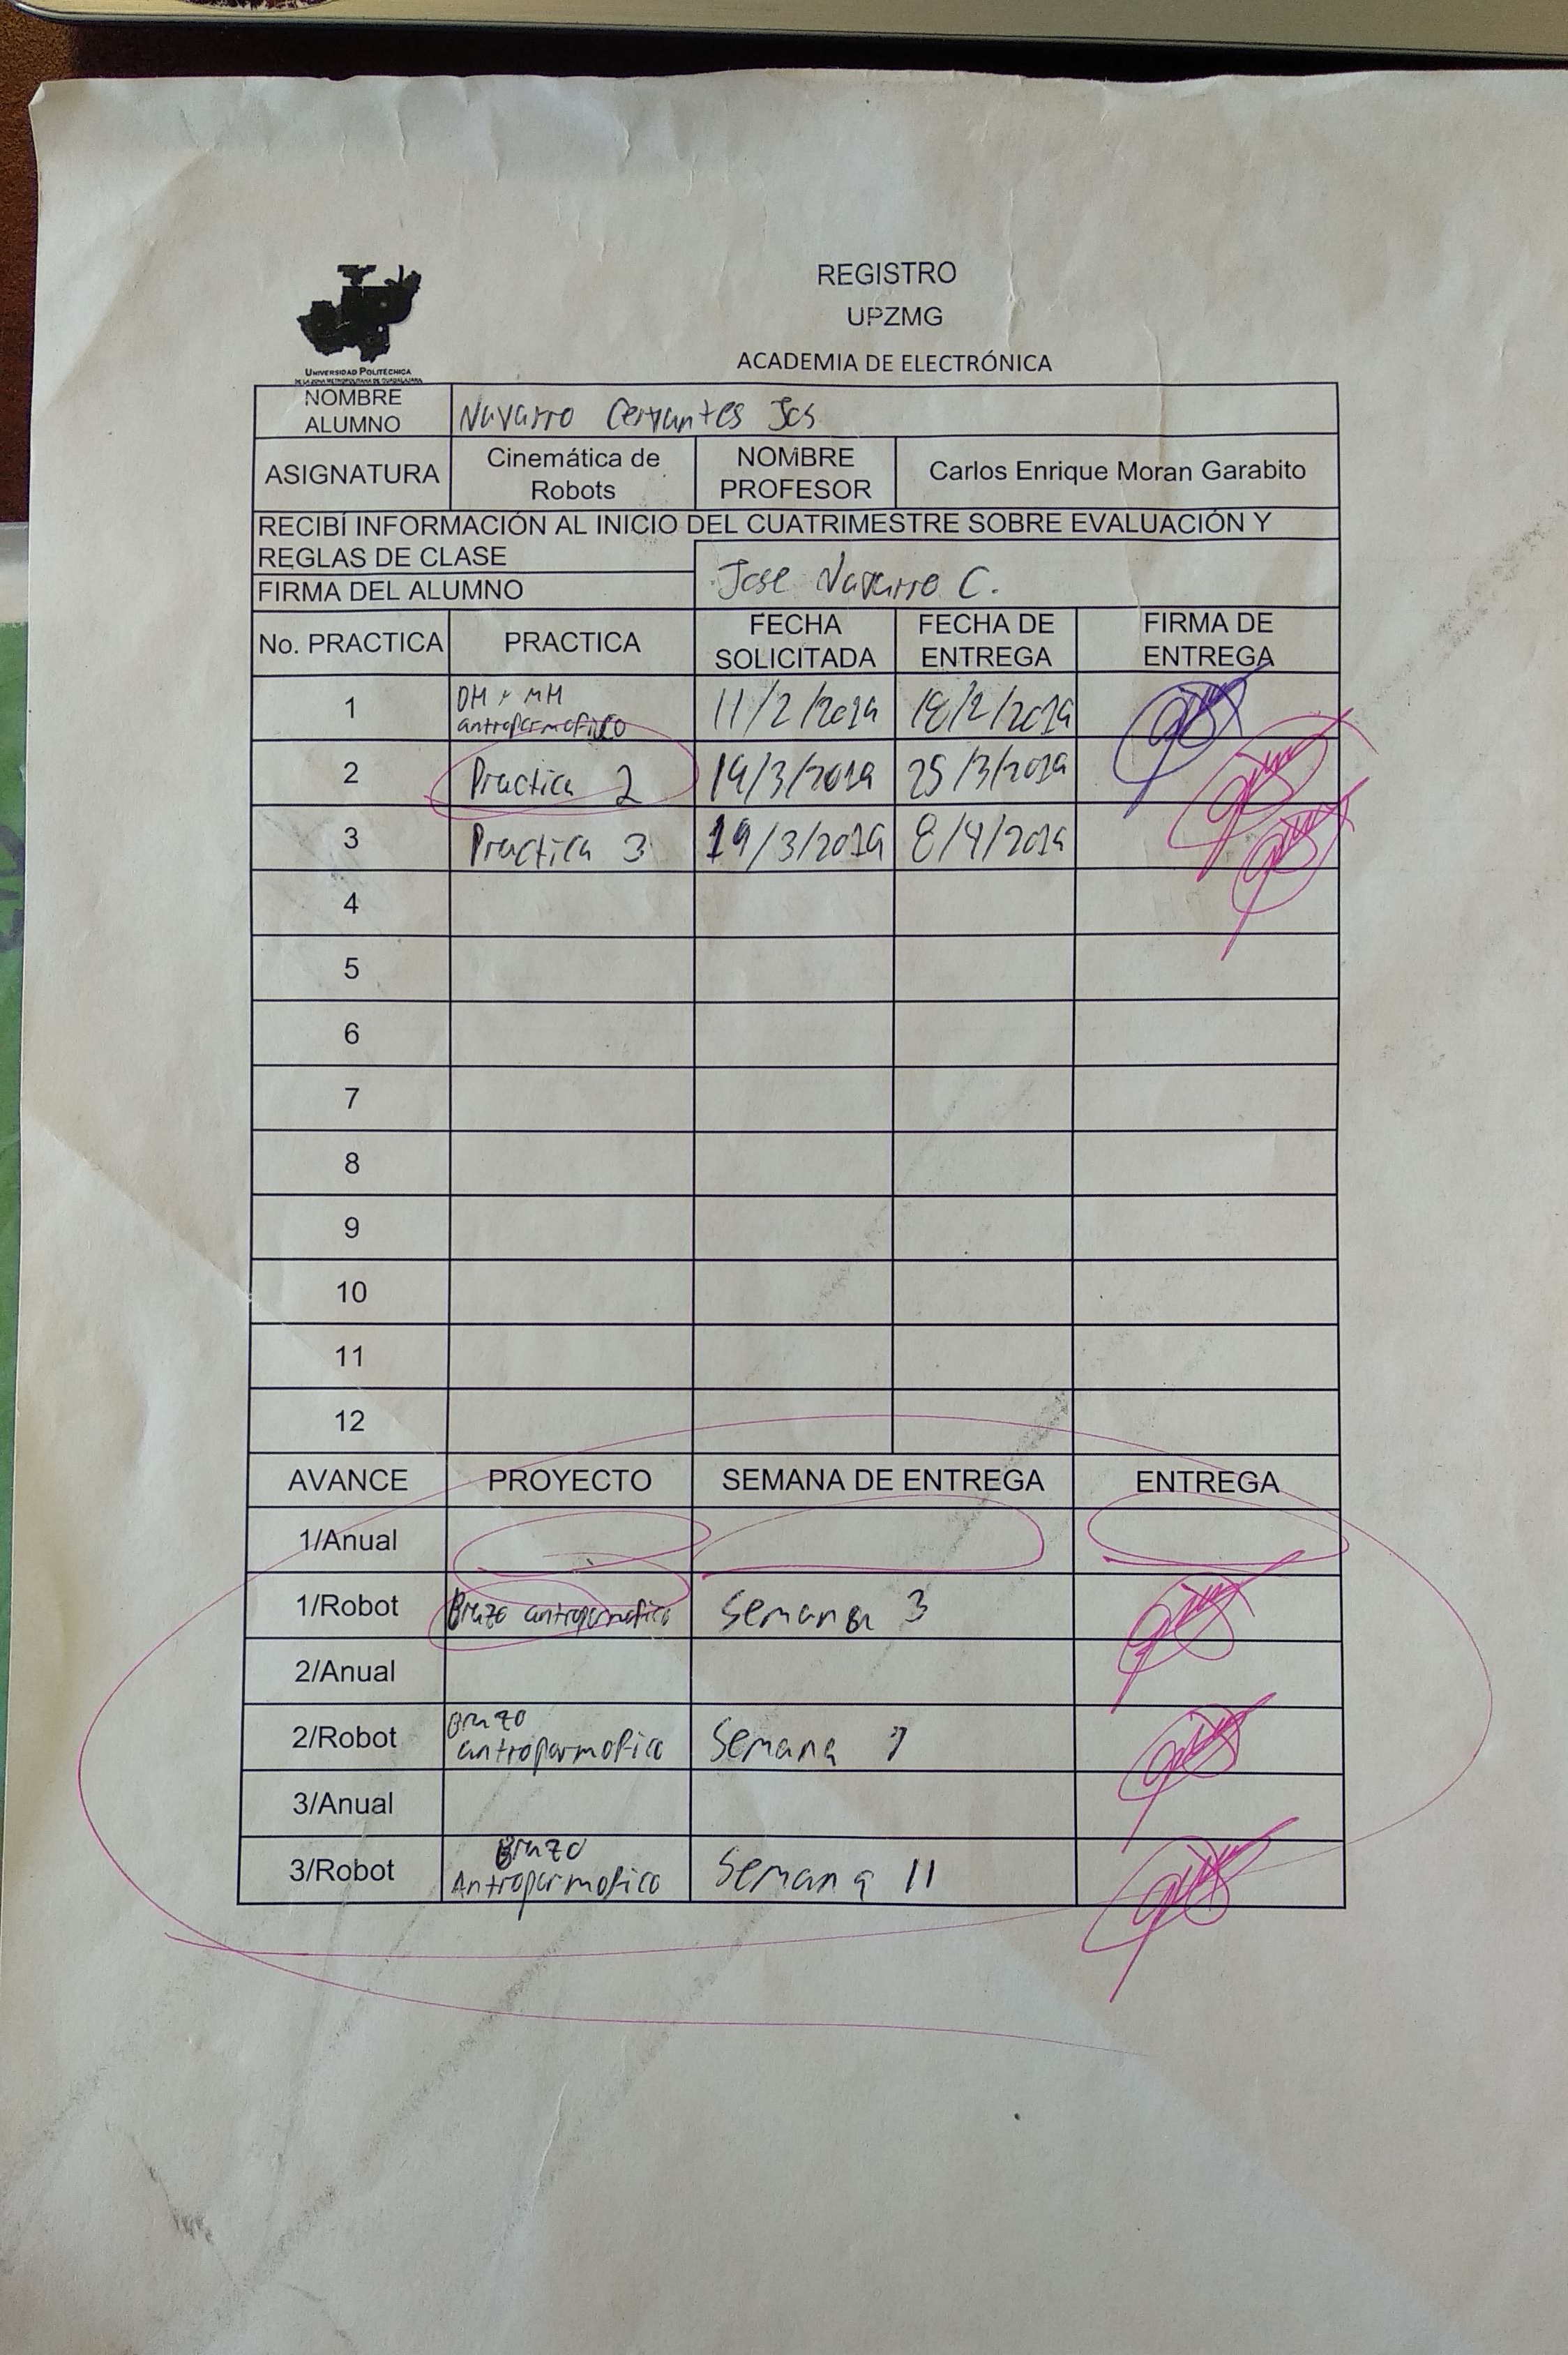 REGISTRO
UPZMG
ACADEMIA DE ELECTRÓNICA
UNIVERSIDAD POLITÉCNICA
DE LA ZONA METROPOLITANA DE GUADALAJARA
NOMBRE ALUMNO Navarro Cervantes Jos
ASIGNATURA Cinemática de Robots NOMBRE PROFESOR Carlos Enrique Moran Garabito
RECIBÍ INFORMACIÓN AL INICIO DEL CUATRIMESTRE SOBRE EVALUACIÓN Y
REGLAS DE CLASE
FIRMA DEL ALUMNO Jose Navarro C.
No. PRACTICA PRACTICA FECHA SOLICITADA FECHA DE ENTREGA FIRMA DE ENTREGA
1 DH y MH antropormofico 11/2/2019 18/2/2019
2 Practica 2 19/3/2019 25/3/2019
3 Practica 3 19/3/2019 8/4/2019
4
5
6
7
8
9
10
11
12
AVANCE PROYECTO SEMANA DE ENTREGA ENTREGA
1/Anual
1/Robot Brazo antropormofico Semana 3
2/Anual
2/Robot Brazo antropormofico Semana 7
3/Anual
3/Robot Brazo Antropormofico Semana 11